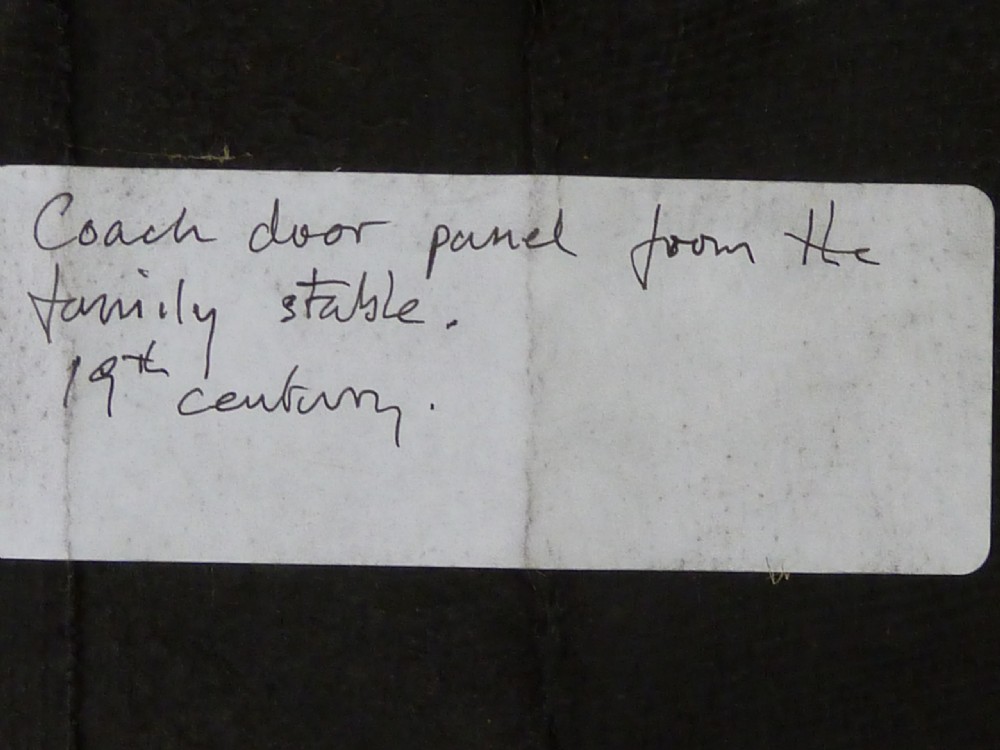 Coach door panel from the
family stable.
19th century.